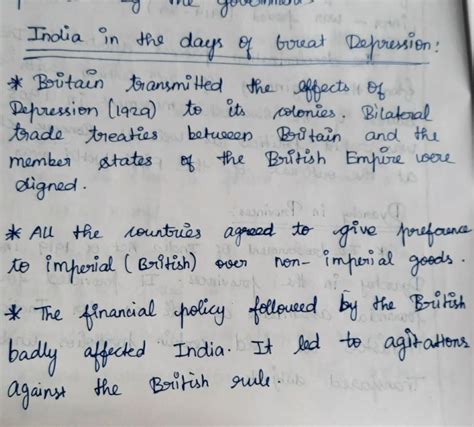 the government
India in the days of Great Depression:
* Britain transmitted the effects of
Depression (1929) to its colonies. Bilateral
trade treaties between Britain and the
member states of the British Empire were
signed.
* All the countries agreed to give preference
to imperial (British) over non-imperial goods.
* The financial policy followed by the British
badly affected India. It led to agitations
against the British rule.